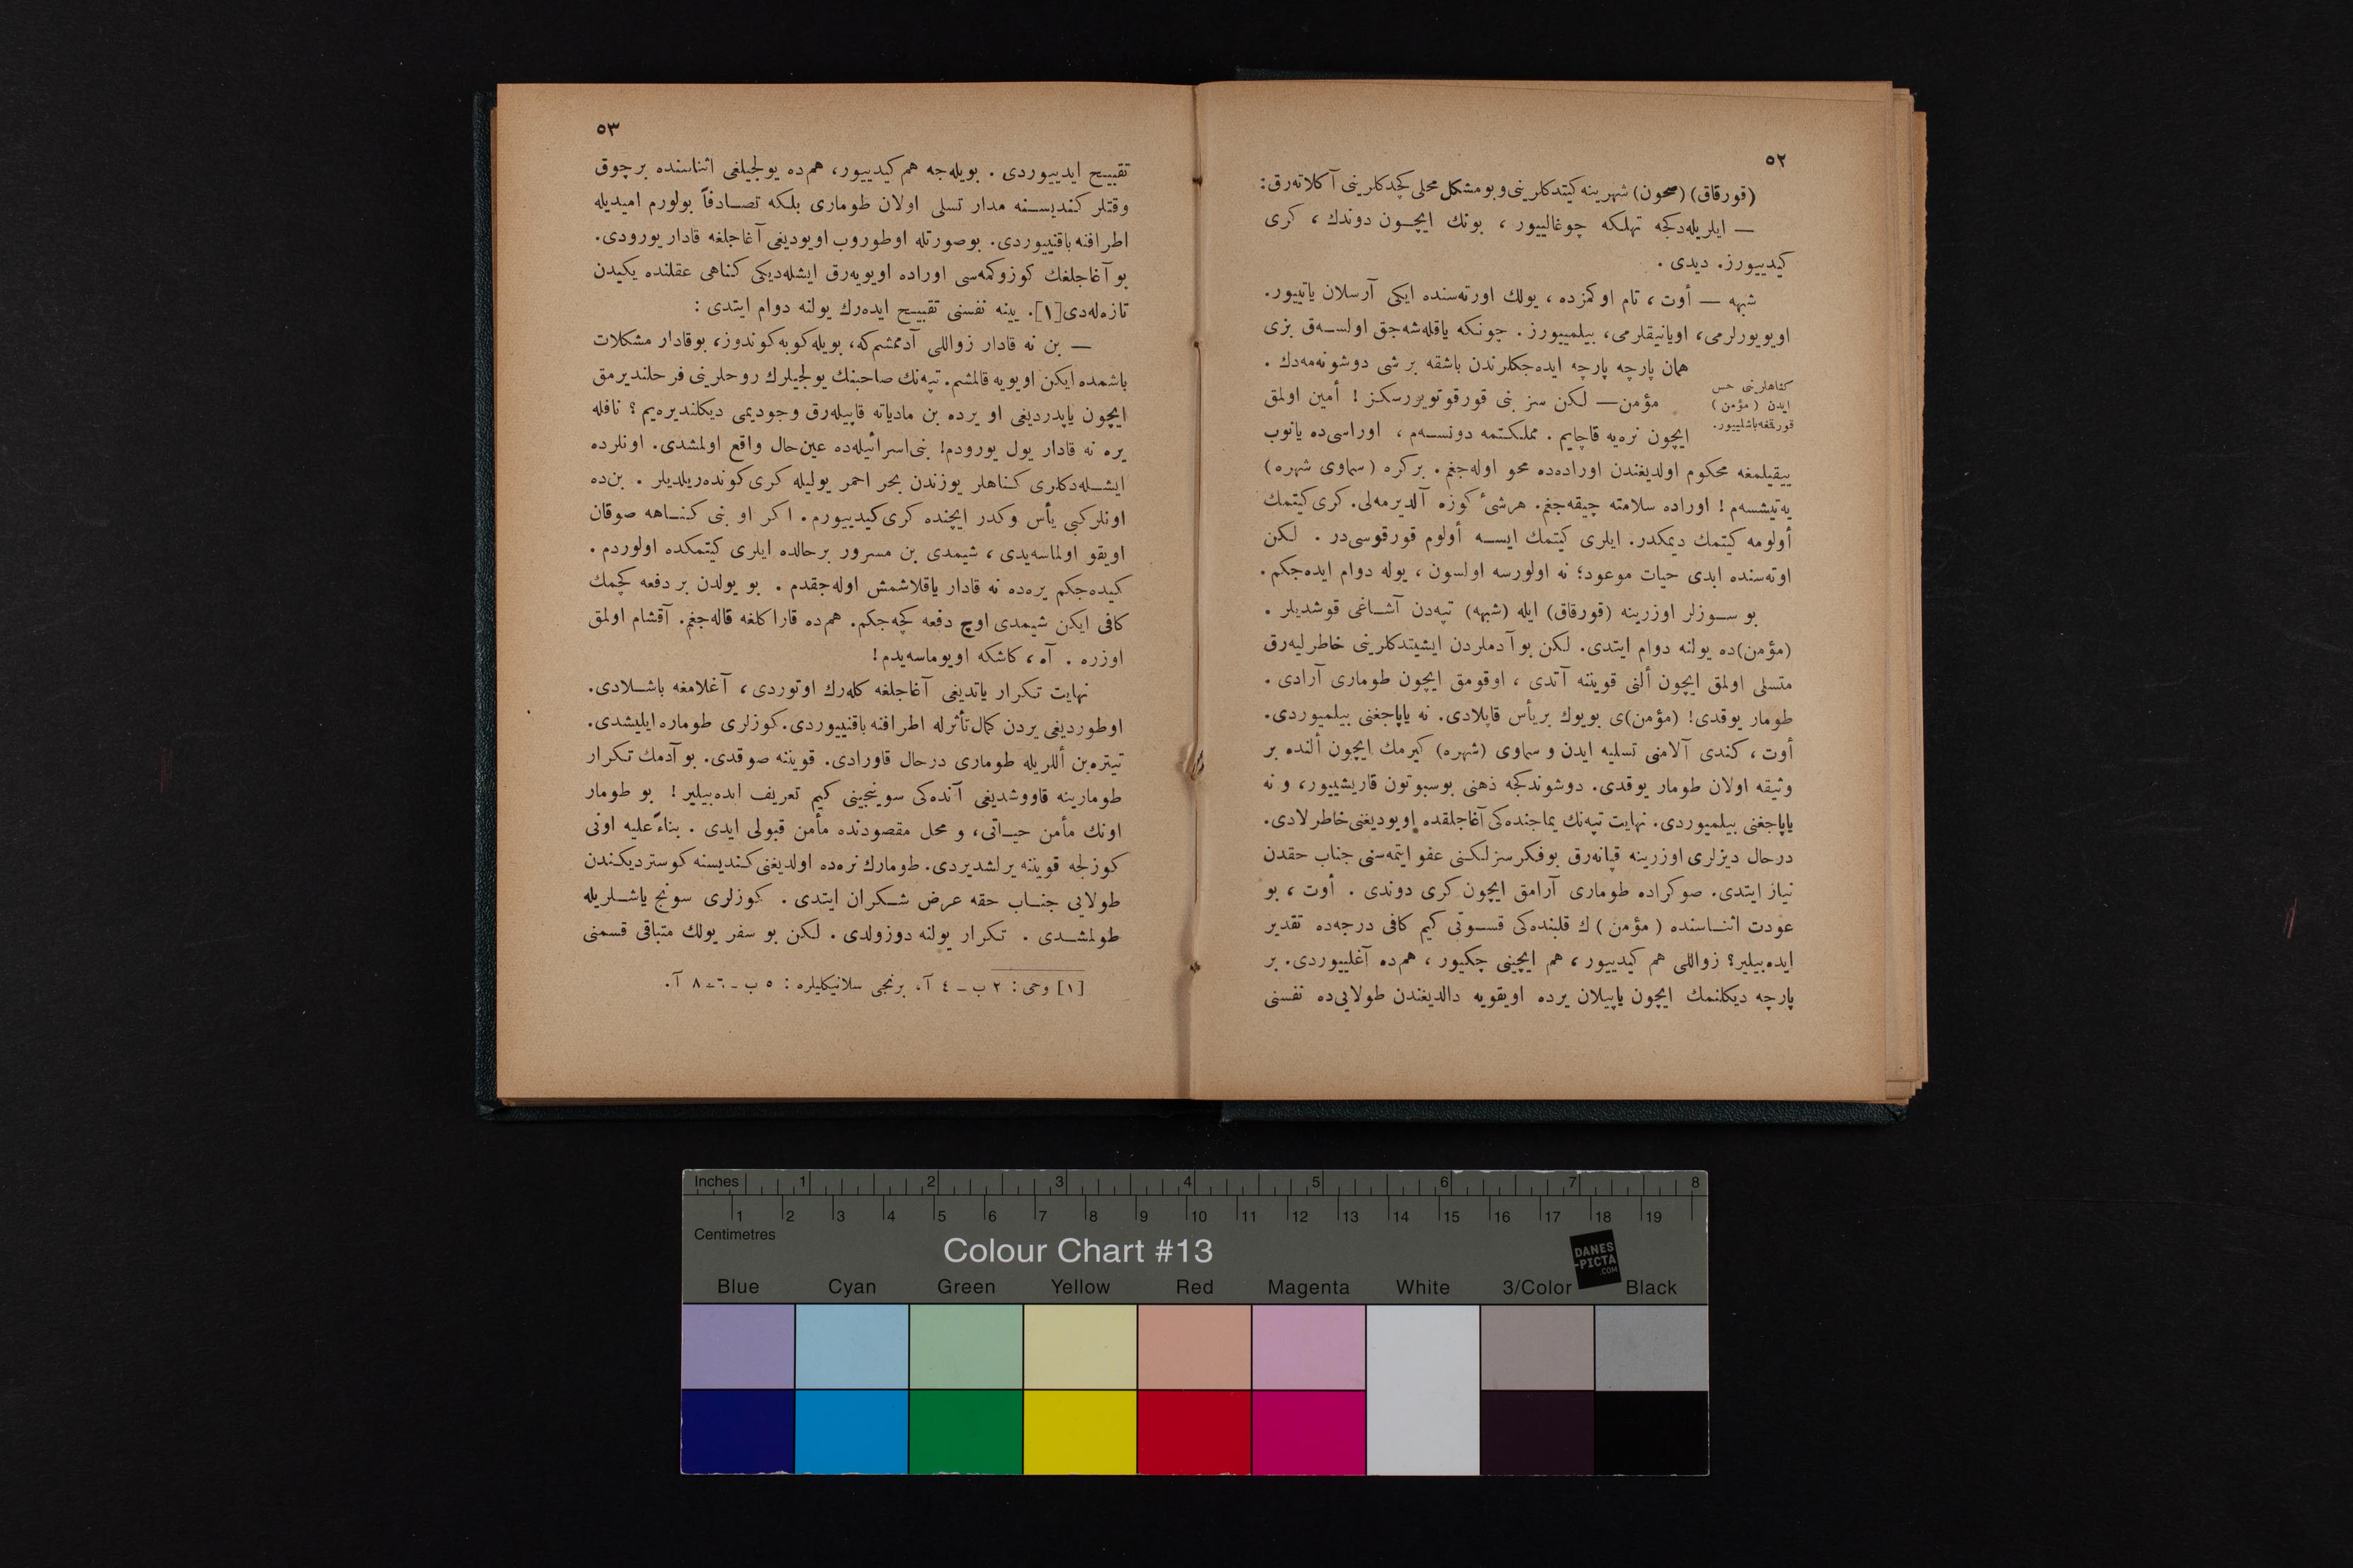 ٥٢
(قورقاق) (صحون) شهرینه کیتدکلرینی و بو مشکل محلی کچدکلرینی آکلاته‌رق:
— ایلریله‌دکجه تهلکه چوغالییور ، بونك ایچـون دوندك ، کری
کیدییورز. دیدی .
شبهه — أوت ، تام اوکمزده ، یولك اورته‌سنده ایکی آرسلان یاتییور.
اویویورلرمی، اویانیقلرمی، بیلمییورز. چونکه یاقله‌شه‌جق اولسـه‌ق بزی
همان پارچه پارچه ایده‌جکلرندن باشقه بر شی دوشونه‌مه‌دك .
کناهلرینی حس
ایدن (مؤمن)
قورقمغه‌باشلییور.
مؤمن— لکن سز بنی قورقوتویورسکز ! أمین اولمق
ایچون نره‌یه قاچایم . مملکتمه دونسـه‌م ، اوراسی‌ده یانوب
ییقیلمغه محکوم اولدیغندن اوراده‌ده محو اوله‌جغم. برکره (سماوی شهره)
یه‌تیشسه‌م ! اوراده سلامته چیقه‌جغم. هرشیٔ کوزه آلدیرمه‌لی. کری کیتمك
أولومه کیتمك دیمکدر. ایلری کیتمك ایسـه أولوم قورقوسی‌در . لکن
اوته‌سنده ابدی حیات موعود؛ نه اولورسه اولسون ، یوله دوام ایده‌جکم .
بو سـوزلر اوزرینه (قورقاق) ایله (شبهه) تپه‌دن آشـاغی قوشدیلر .
(مؤمن)ده یولنه دوام ایتدی. لکن بو آدملردن ایشیتدکلرینی خاطرلیه‌رق
متسلی اولمق ایچون ألنی قویننه آتدی ، اوقومق ایچون طوماری آرادی .
طومار یوقدی! (مؤمن)ی بویوك بریأس قاپلادی. نه یاپاجغنی بیلمیوردی.
أوت ، کندی آلامنی تسلیه ایدن و سماوی (شهره) کیرمك ایچون ألنده بر
وثیقه اولان طومار یوقدی. دوشوندکجه ذهنی بوسبوتون قاریشییور، و نه
یاپاجغنی بیلمیوردی. نهایت تپه‌نك یماجنده‌کی آغاجلقده اویودیغنی خاطرلادی.
درحال دیزلری اوزرینه قپانه‌رق بوفکرسزلکنی عفو ایتمه‌سنی جناب حقدن
نیاز ایتدی. صوکراده طوماری آرامق ایچون کری دوندی . أوت ، بو
عودت اثنـاسنده (مؤمن) ك قلبنده‌کی قسـوتی کیم کافی درجه‌ده تقدیر
ایده‌بیلیر؟ زواللی هم کیدییور ، هم ایچینی چکیور ، هم‌ده آغلییوردی. بر
پارچه دیکلنمك ایچون یاپیلان یرده اویقویه دالدیغندن طولایی‌ده نفسنی
٥٣
تقبیـح ایدییوردی . بویله‌جه هم کیدییور، هم‌ده یولجیلغی اثناسنده برچوق
وقتلر کندیسـنه مدار تسلی اولان طوماری بلکه تصـادفاً بولورم امیدیله
اطرافنه باقنییوردی. بوصورتله اوطوروب اویودیغی آغاجلغه قادار یورودی.
بو آغاجلغك کوزوکمه‌سی اوراده اویویه‌رق ایشله‌دیکی کناهی عقلنده یکیدن
تازه‌له‌دی[١]. یینه نفسنی تقبیـح ایده‌رك یولنه دوام ایتدی :
— بن نه قادار زواللی آدممشم‌که، بویله کوپه‌کوندوز، بوقادار مشکلات
باشمده ایکن اویویه قالمشم. تپه‌نك صاحبنك یولجیلرك روحلرینی فرحلندیرمق
ایچون یاپدردیغی او یرده بن مادیاته قاپیله‌رق وجودیمی دیکلندیره‌یم ؟ نافله
یره نه قادار یول یورودم! بنی‌اسرائیله‌ده عین‌حال واقع اولمشدی. اونلرده
ایشـله‌دکلری کـناهلر یوزندن بحر احمر یولیله کری کونده‌ریلدیلر . بن‌ده
اونلرکبی یأس وکدر ایچنده کری کیدییورم. اکر او بنی کنـاهه صوقان
اویقو اولماسه‌یدی ، شیمدی بن مسرور برحالده ایلری کیتمکده اولوردم .
کیده‌جکم یره‌ده نه قادار یاقلاشمش اوله‌جقدم . بو یولدن بر دفعه کچمك
کافی ایکن شیمدی اوچ دفعه کچه‌جکم. هم‌ده قاراکلغه قاله‌جغم. آقشام اولمق
اوزره . آه ، کاشکه اویوماسه‌یدم!
نهایت تکرار یاتدیغی آغاجلغه کله‌رك اوتوردی ، آغلامغه باشـلادی.
اوطوردیغی یردن کمال تأثرله اطرافنه باقنییوردی.کوزلری طوماره ایلیشدی.
تیتره‌ین أللریله طوماری درحال قاورادی. قویننه صوقدی. بو آدمك تکرار
طومارینه قاووشدیغی آنده‌کی سوینجینی کیم تعریف ایده‌بیلیر ! بو طومار
اونك مأمن حیـاتی، و محل مقصودنده مأمن قبولی ایدی . بناءً علیه اونی
کوزلجه قویننه یرلشدیردی. طومارك نره‌ده اولدیغنی کندیسنه کوستردیکندن
طولایی جنـاب حقه عرض شـکران ایتدی . کوزلری سونج یاشـلریله
طولمشـدی . تکرار یولنه دوزولدی . لـکن بو سفر یولك متباقی قسمنی
[١] وحی : ٢ ب ــ ٤ آ. برنجی سلانیکلیلره : ٥ ب ــ ٦ــ٨ آ.
Inches 1 2 3 4 5 6 7 8
1 2 3 4 5 6 7 8 9 10 11 12 13 14 15 16 17 18 19
Centimetres
Colour Chart #13
DANES
-PICTA
.COM
Blue Cyan Green Yellow Red Magenta White 3/Color Black